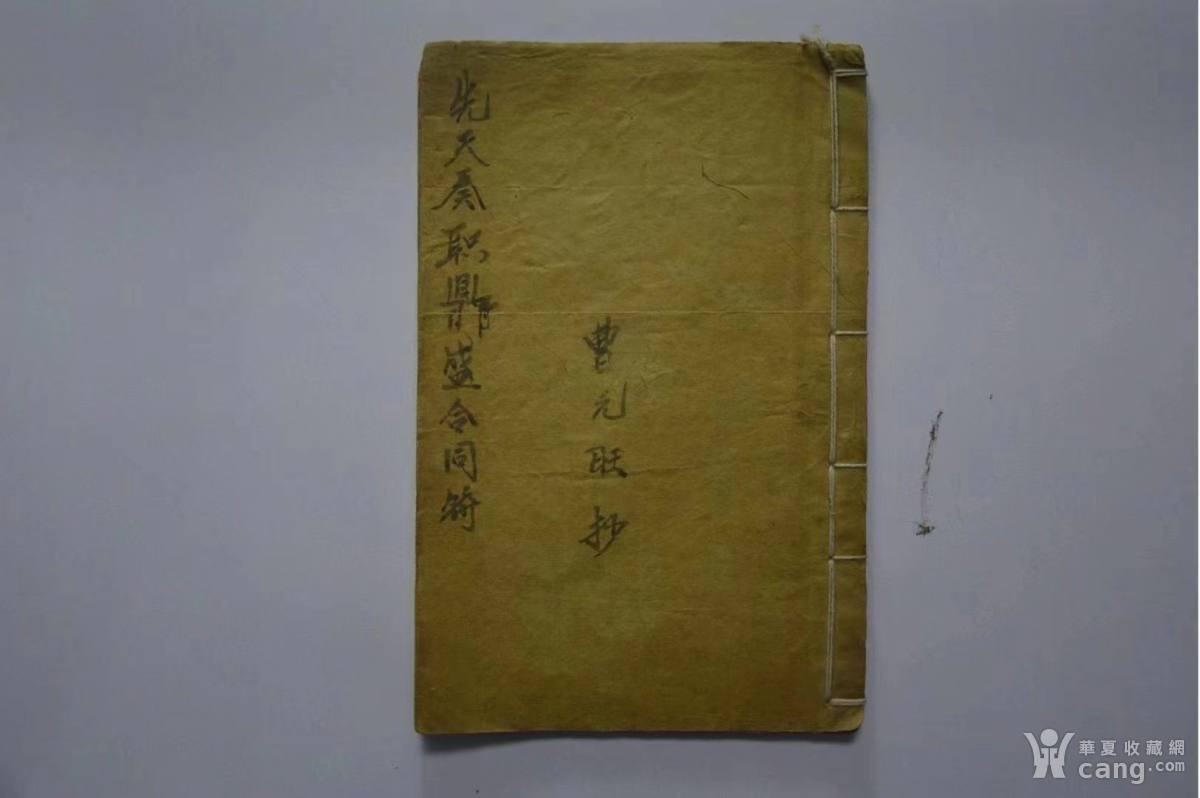 先天奏职鼎盛合同符
曹元旺抄
華夏收藏網
cang.com